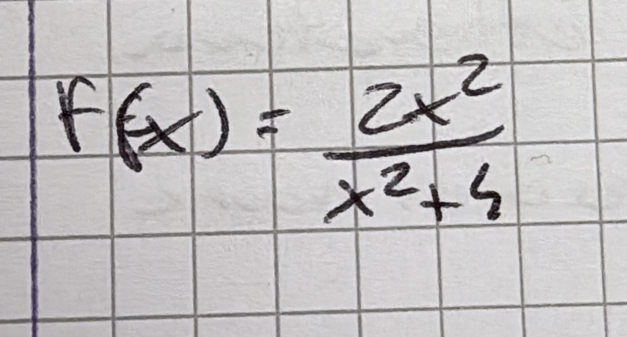 f(-x) = 2x² / x² + 4